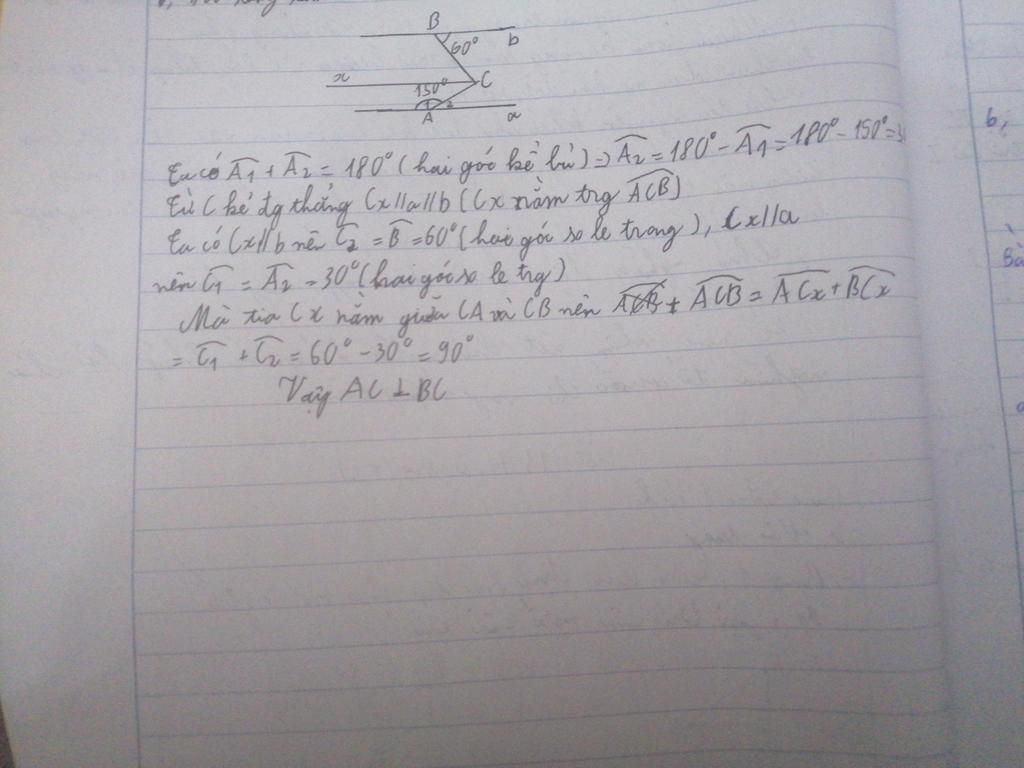 B
60°
b
x
150°
C
1 2
A
a
Ta có Â1 + Â2 = 180° (hai góc kề bù) ⇒ Â2 = 180° - Â1 = 180° - 150° = 3
Từ C kẻ đg thẳng Cx//a//b (Cx nằm trg ACB)
Ta có Cx//b nên C2 = B = 60° (hai góc so le trong), Cx//a
nên C1 = A2 = 30° (hai góc so le trg)
Mà tia Cx nằm giữa CA và CB nên ACB + ACB = ACx + BCx
= C1 + C2 = 60° - 30° = 90°
Vậy AC ⊥ BC
b,
Bà